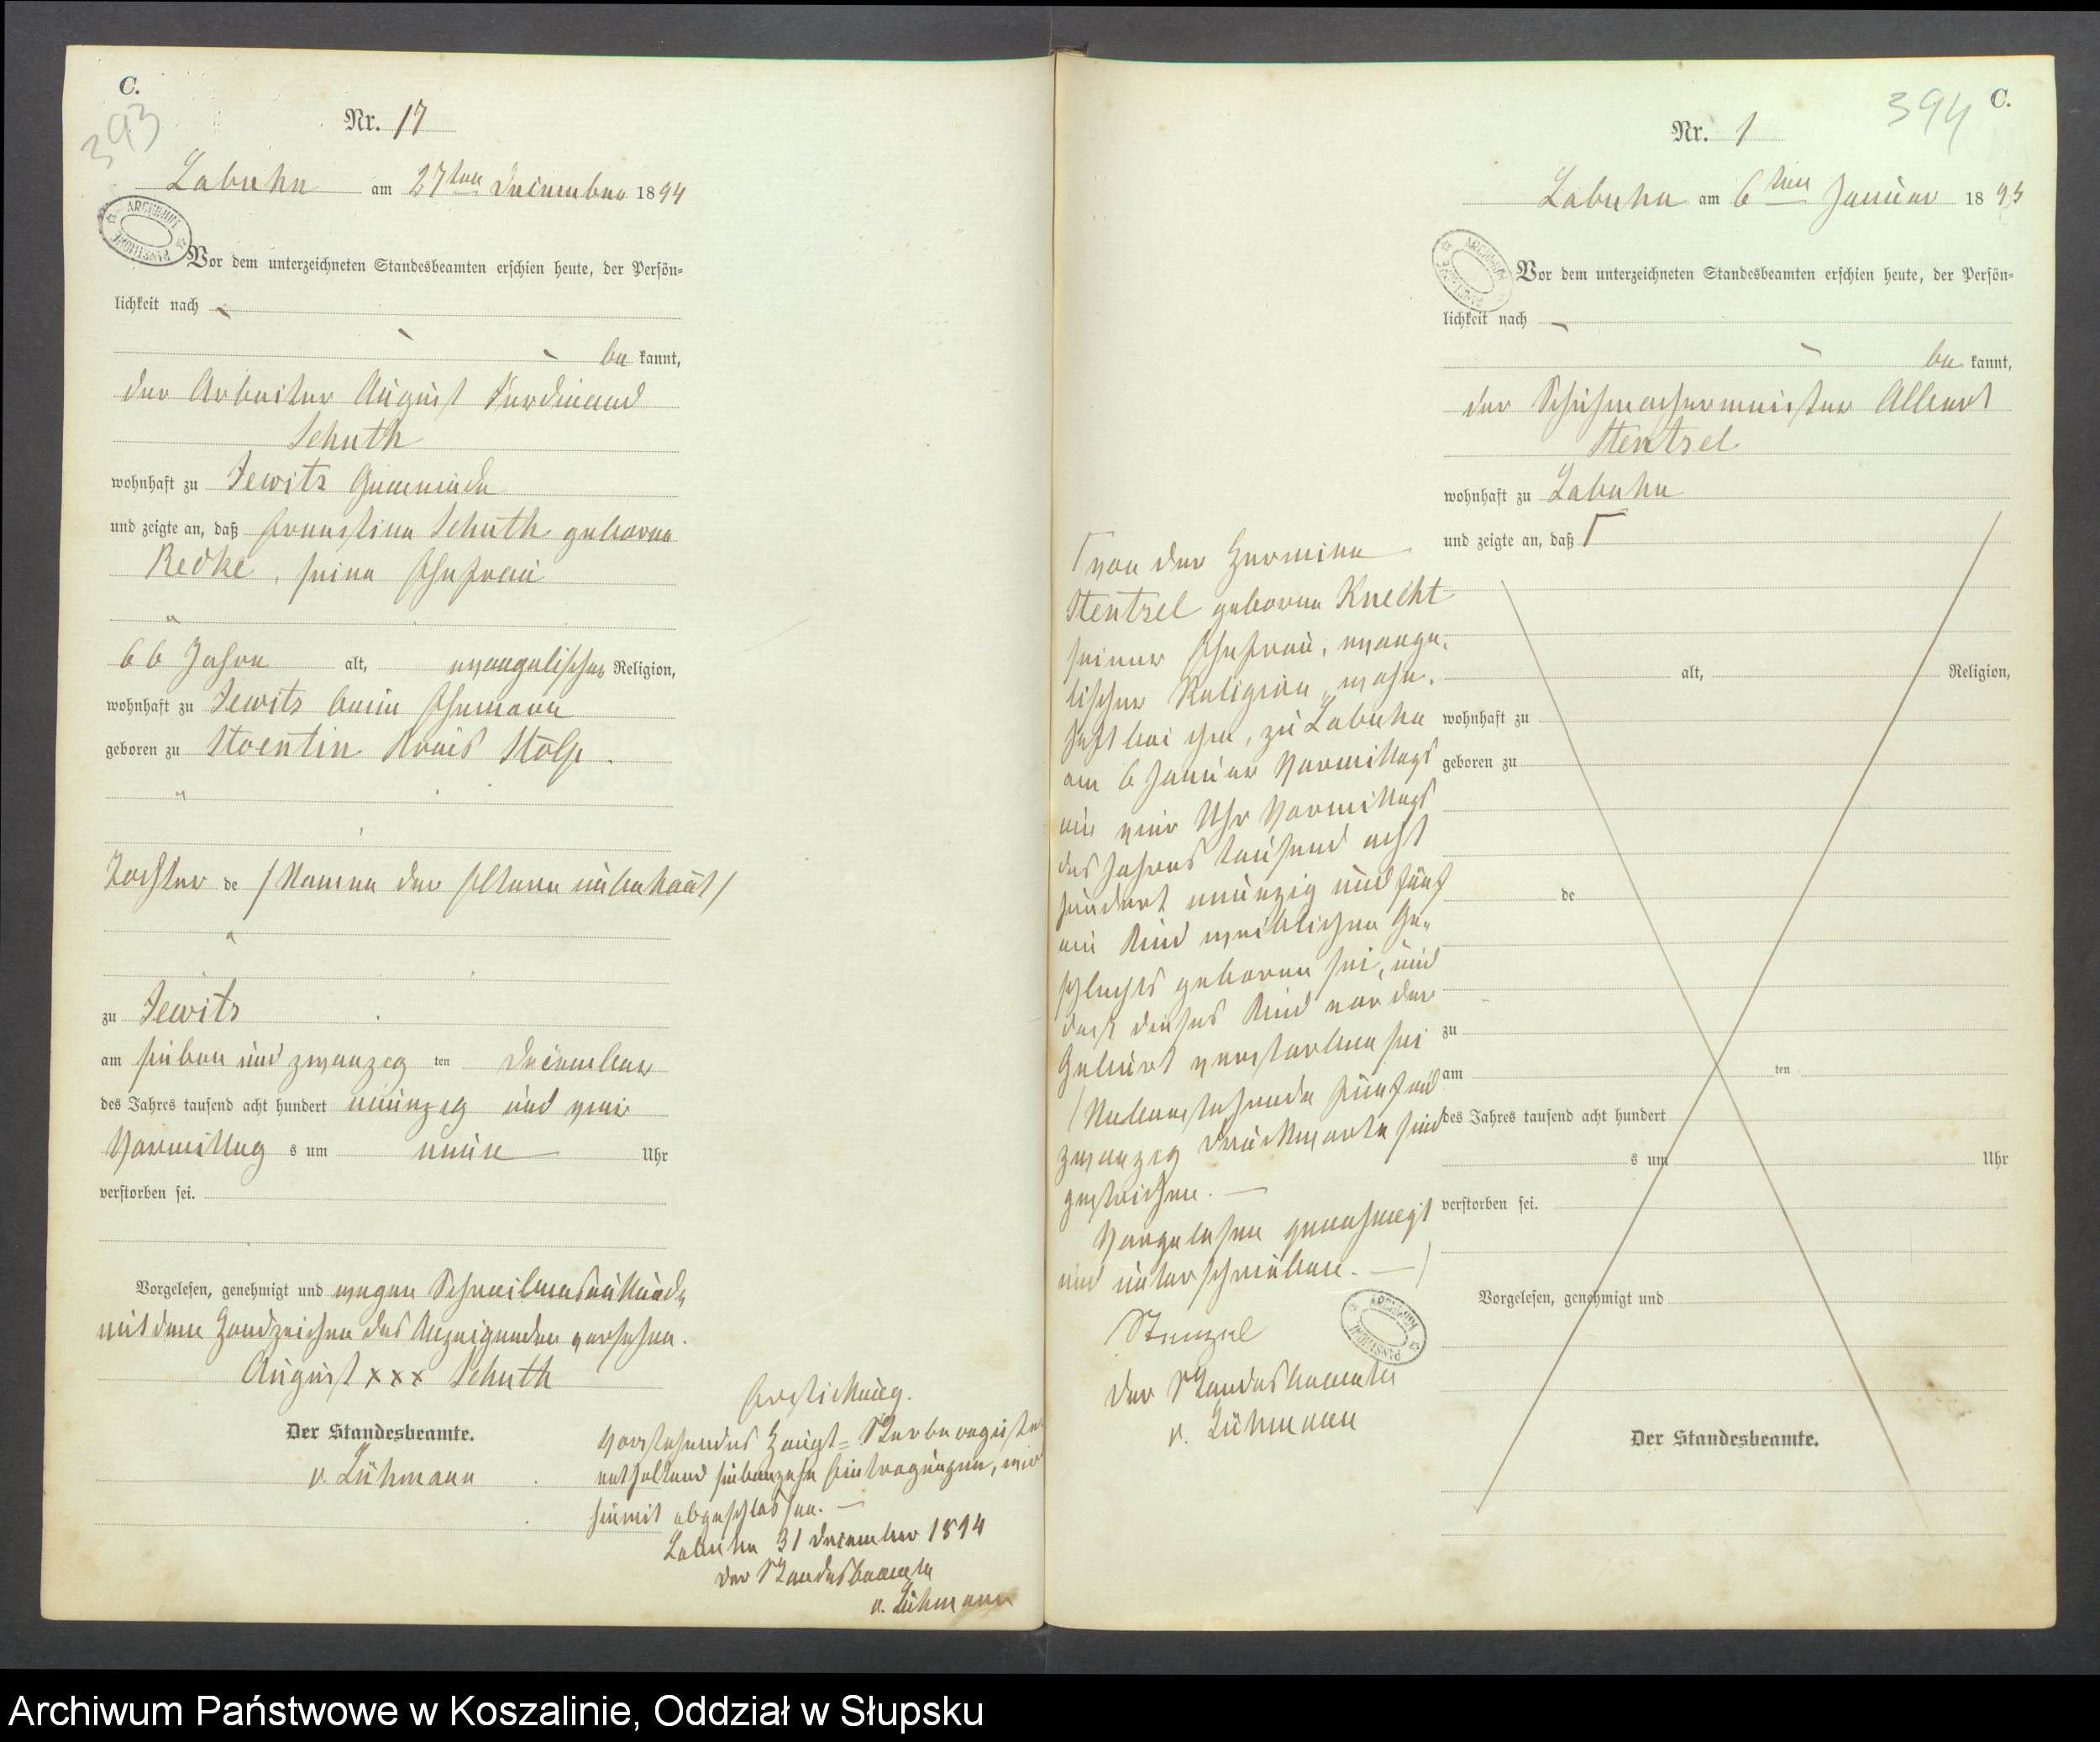 C.
393
Nr. 17
Labuhn am 27ten December 1894
ARCHIWUM PAŃSTWOWE
Vor dem unterzeichneten Standesbeamten erschien heute, der Persön=
lichkeit nach
be kannt,
der Arbeiter August Ferdinand
Schuth
wohnhaft zu Jewitz Gemeinde
und zeigte an, daß Ernestine Schuth geborne
Redke, seine Ehefrau
66 Jahre alt, evangelischer Religion,
wohnhaft zu Jewitz beim Ehemann
geboren zu Stoentin Kreis Stolp.
Tochter de /Namen der Eltern unbekannt/
zu Jewitz
am sieben und zwanzig ten December
des Jahres tausend acht hundert neunzig und vier
Vormittag s um neun Uhr
verstorben sei.
Vorgelesen, genehmigt und wegen Schreibensunkunde
mit dem Handzeichen des Anzeigenden versehen.
August xxx Schuth
Der Standesbeamte.
v. Lühmann
Vorstehendes Haupt=Sterberegister
enthaltend siebenzehn Eintragungen, wird
hiermit abgeschlossen.
Labuhn 31 December 1894
Der Standesbeamte
v. Lühmann
C.
394
Nr. 1
Labuhn am 6ten Januar 1895
ARCHIWUM PAŃSTWOWE
Vor dem unterzeichneten Standesbeamten erschien heute, der Persön=
lichkeit nach
be kannt,
der Schuhmachermeister Albert
Stentzel
wohnhaft zu Labuhn
und zeigte an, daß
alt, Religion,
wohnhaft zu
geboren zu
de
zu
am ten
des Jahres tausend acht hundert
s um Uhr
verstorben sei.
Vorgelesen, genehmigt und
Der Standesbeamte.
von der Hermine
Stentzel geborne Knecht
seiner Ehefrau, evange,
lischer Religion, wohn,
haft bei ihm, zu Labuhn
am 6 Januar Vormittags
um vier Uhr Vormittags
des Jahres tausend acht
hundert neunzig und fünf
ein Kind weiblichen Ge,,
schlechts geboren sei, und
daß dieses Kind vor der
Geburt verstorben sei
/Nebenstehende fünf und
zwanzig Druckworte sind
gestrichen.
Vorgelesen genehmigt
und unterschrieben.
Stenzel
Der Standesbeamte
v. Lühmann
ARCHIWUM PAŃSTWOWE
Archiwum Państwowe w Koszalinie, Oddział w Słupsku